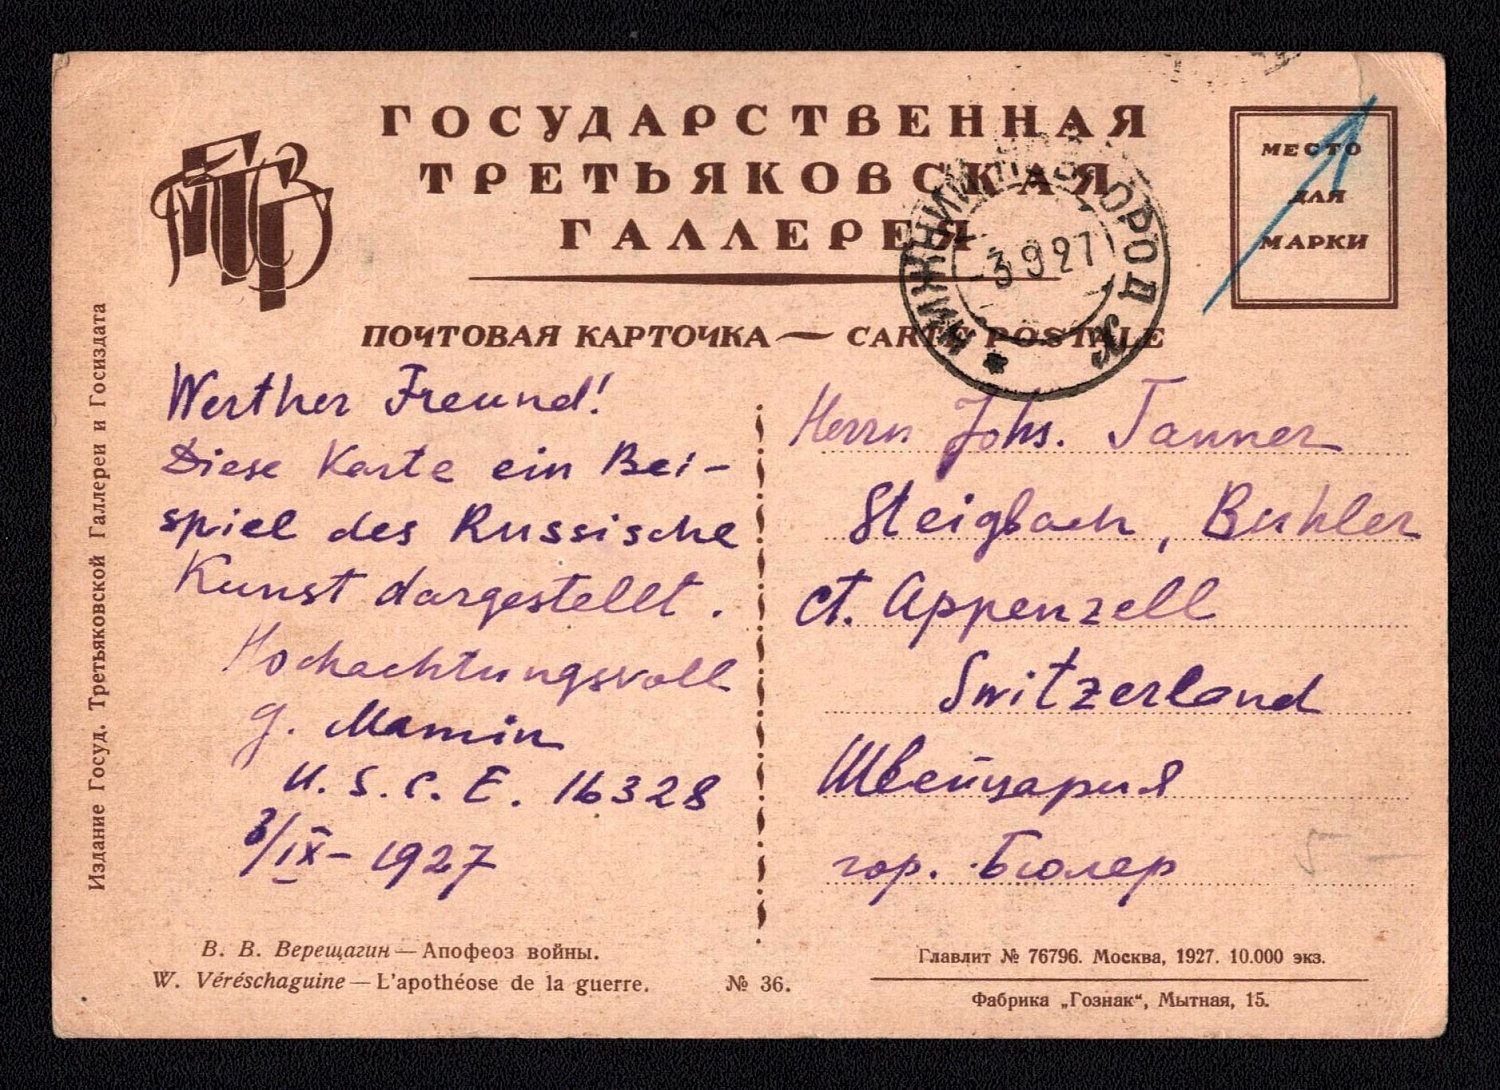 ГОСУДАРСТВЕННАЯ
ТРЕТЬЯКОВСКАЯ
ГАЛЛЕРЕЯ
ПОЧТОВАЯ КАРТОЧКА — CARTE POSTALE
МЕСТО
ДЛЯ
МАРКИ
НИЖНИЙ НОВГОРОД
3 9 27
Издание Госуд. Третьяковской Галлереи и Госиздата
Werther Freund!
Diese Karte ein Bei-
spiel des Russische
Kunst dargestellt.
Hochachtungsvoll
G. Mamin
U.S.C.E. 16328
3/IX- 1927
Herrn Johs. Tanner
Steigbach, Buhler
ct. Appenzell
Switzerland
Швейцария
гор. Бюлер
В. В. Верещагин — Апофеоз войны.
W. Véréschaguine — L'apothéose de la guerre.
№ 36.
Главлит № 76796. Москва, 1927. 10.000 экз.
Фабрика „Гознак“, Мытная, 15.